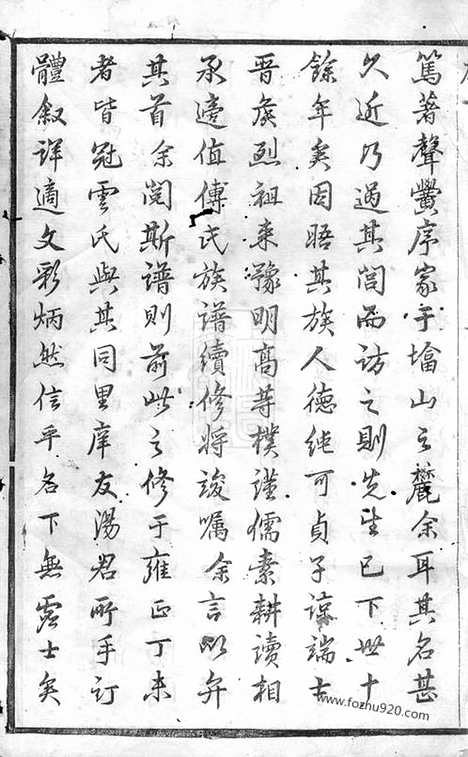 篤著聲黌序家于墖山之麓余耳其名甚
久近乃過其閭而訪之則先生已下世十
餘年矣因晤其族人德純可貞子諒端士
晋侯烈祖来豫明高等樸謹儒素耕讀相
承適值傅氏族譜續修將竣嘱余言以弁
其首余閲斯譜則前此之修于雍正丁未
者皆冠雲氏與其同里庠友湯君所手訂
體叙詳適文彩炳然信乎名下無虚士矣
www.fozhu920.com